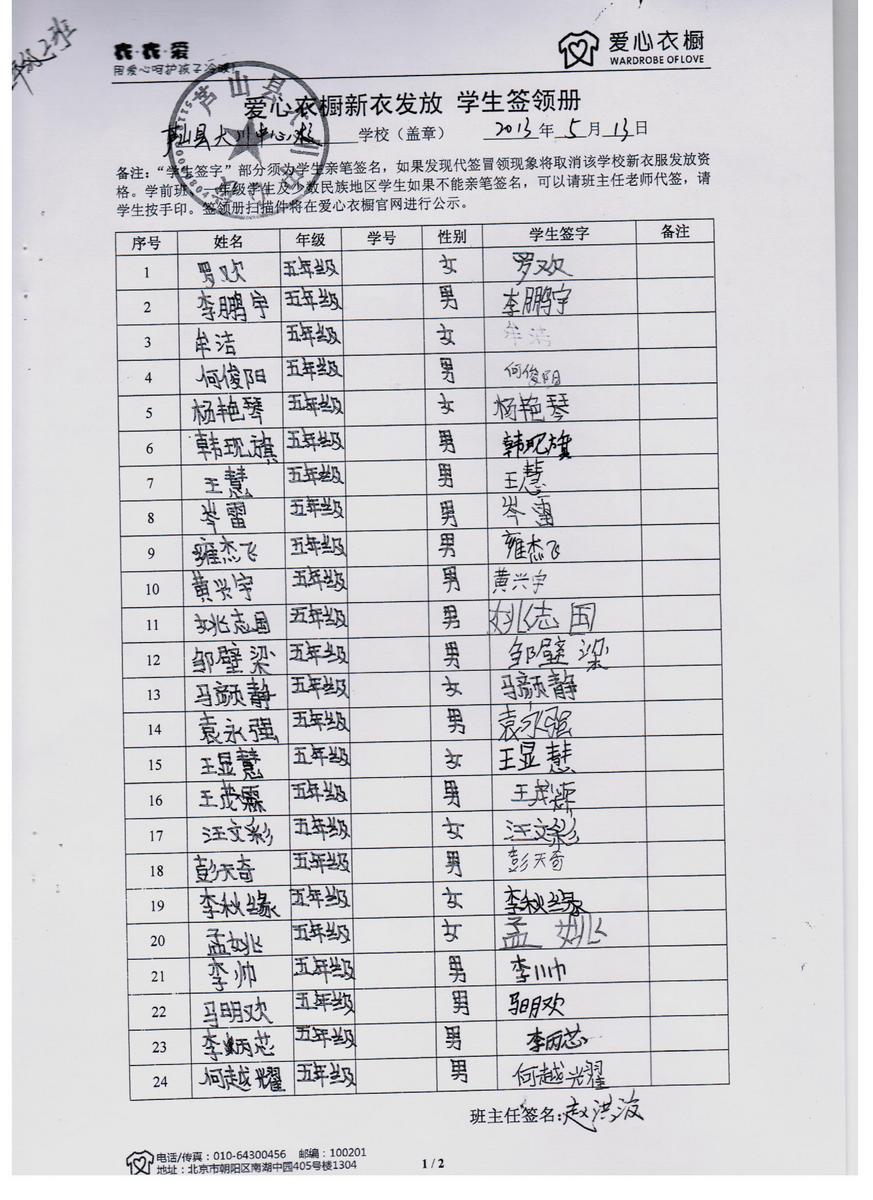 年级2班
衣·衣·爱
用爱心呵护孩子冷暖!
爱心衣橱
WARDROBE OF LOVE
爱心衣橱新衣发放 学生签领册
芦山县大川中心校 学校（盖章） 2013年5月13日
备注：“学生签字”部分须为学生亲笔签名，如果发现代签冒领现象将取消该学校新衣服发放资
格。学前班、一年级学生及少数民族地区学生如果不能亲笔签名，可以请班主任老师代签，请
学生按手印。签领册扫描件将在爱心衣橱官网进行公示。
序号 姓名 年级 学号 性别 学生签字 备注
1 罗欢 五年级 女 罗欢
2 李鹏宇 五年级 男 李鹏宇
3 牟洁 五年级 女 牟洁
4 何俊阳 五年级 男 何俊阳
5 杨艳琴 五年级 女 杨艳琴
6 韩现旗 五年级 男 韩现旗
7 王慧 五年级 男 王慧
8 岑雷 五年级 男 岑雷
9 雍杰飞 五年级 男 雍杰飞
10 黄兴宇 五年级 男 黄兴宇
11 姚志国 五年级 男 姚志国
12 邹壁梁 五年级 男 邹壁梁
13 马颜静 五年级 女 马颜静
14 袁永强 五年级 男 袁永强
15 王显慧 五年级 女 王显慧
16 王茂霖 五年级 男 王茂霖
17 汪文彩 五年级 女 汪文彩
18 彭天奇 五年级 男 彭天奇
19 李秋缘 五年级 女 李秋缘
20 孟姚 五年级 女 孟姚
21 李帅 五年级 男 李帅
22 马明欢 五年级 男 马明欢
23 李炳芯 五年级 男 李丙芯
24 何越耀 五年级 男 何越耀
班主任签名：赵洪波
电话/传真：010-64300456 邮编：100201
地址：北京市朝阳区南湖中园405号楼1304
1 / 2